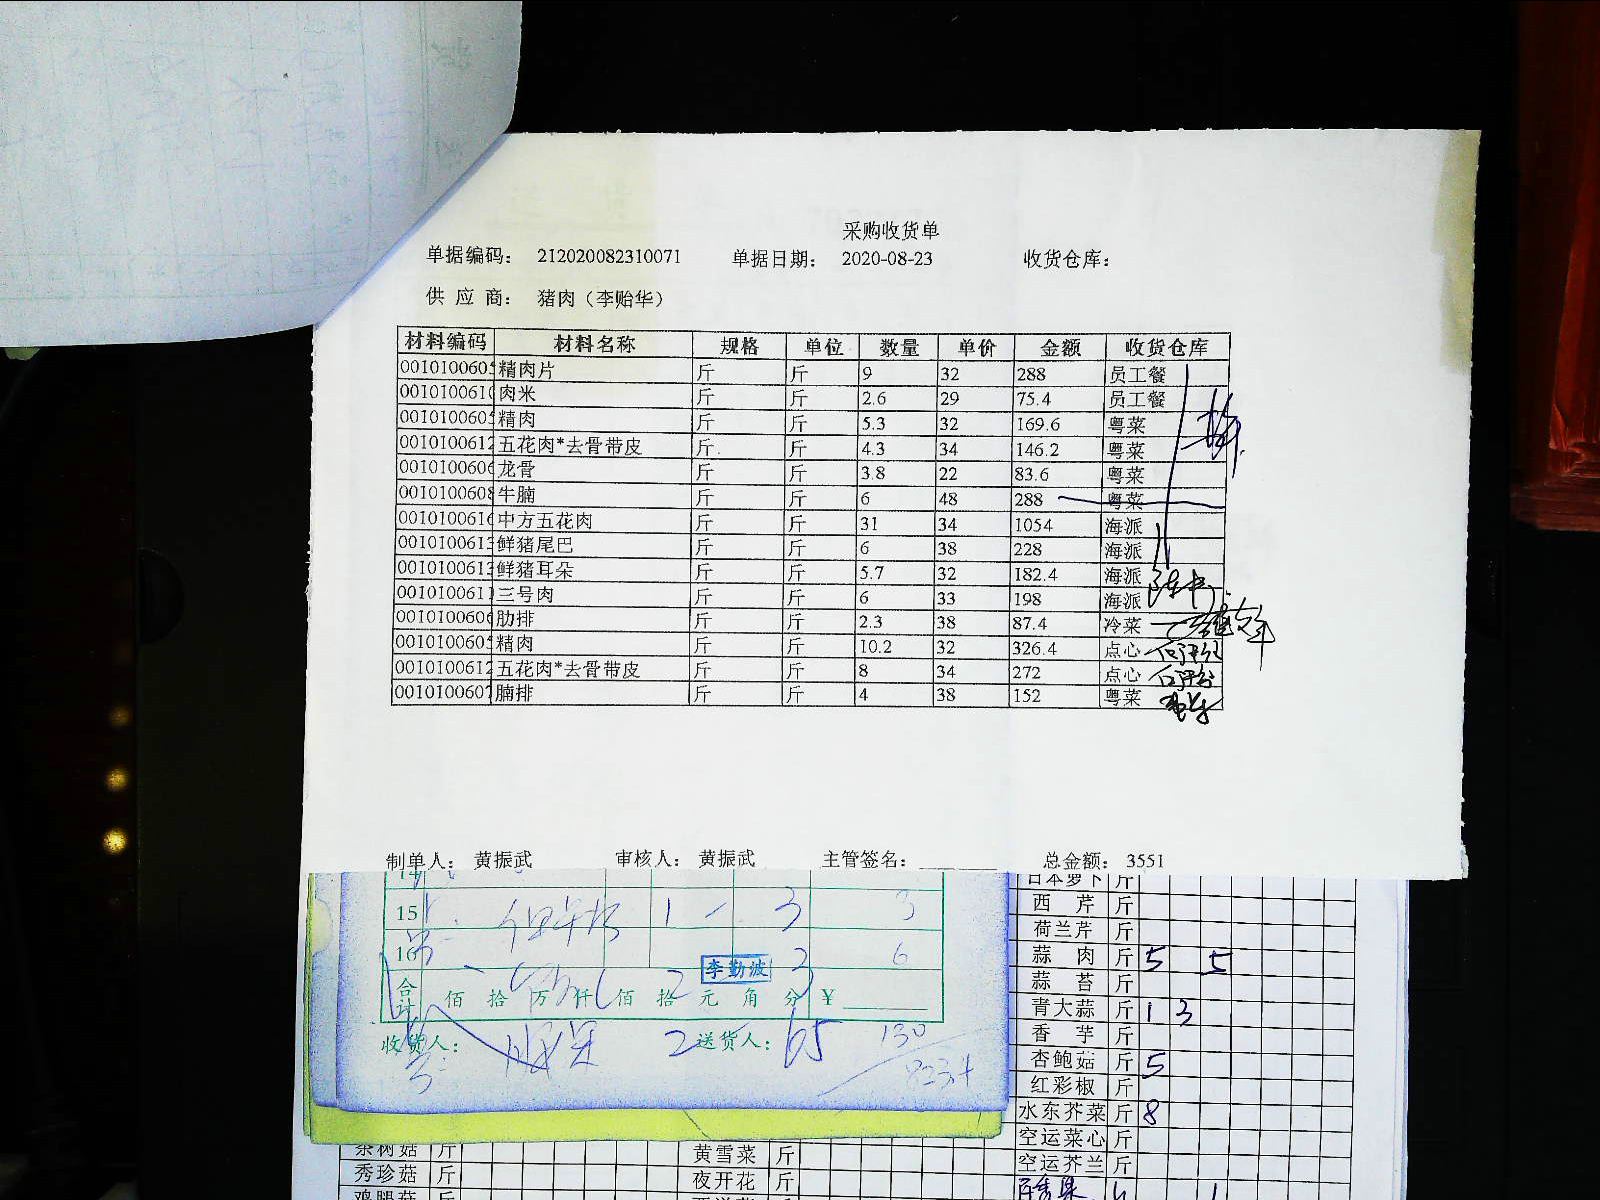 采购收货单
单据编码： 212020082310071 单据日期： 2020-08-23 收货仓库：
供 应 商： 猪肉（李贻华）
材料编码 材料名称 规格 单位 数量 单价 金额 收货仓库
0010100605 精肉片 斤 斤 9 32 288 员工餐
0010100610 肉米 斤 斤 2.6 29 75.4 员工餐
0010100605 精肉 斤 斤 5.3 32 169.6 粤菜
0010100612 五花肉*去骨带皮 斤 斤 4.3 34 146.2 粤菜
0010100606 龙骨 斤 斤 3.8 22 83.6 粤菜
0010100608 牛腩 斤 斤 6 48 288 粤菜
0010100616 中方五花肉 斤 斤 31 34 1054 海派
0010100613 鲜猪尾巴 斤 斤 6 38 228 海派
0010100613 鲜猪耳朵 斤 斤 5.7 32 182.4 海派
0010100611 三号肉 斤 斤 6 33 198 海派
0010100606 肋排 斤 斤 2.3 38 87.4 冷菜
0010100605 精肉 斤 斤 10.2 32 326.4 点心
0010100612 五花肉*去骨带皮 斤 斤 8 34 272 点心
0010100607 腩排 斤 斤 4 38 152 粤菜
制单人： 黄振武 审核人： 黄振武 主管签名： 总金额： 3551
14
15 1 3 3
16 6
李勤波
合计 佰 拾 万 仟 佰 拾 元 角 分 ¥
收货人： 2 送货人： 65 130
日本萝卜 斤
西 芹 斤
荷兰芹 斤
蒜 肉 斤 5 5
蒜 苔 斤
青大蒜 斤 1 3
香 芋 斤
杏鲍菇 斤 5
红彩椒 斤
水东芥菜 斤 8
空运菜心 斤
空运芥兰 斤
茶树菇 斤 黄雪菜 斤
秀珍菇 斤 夜开花 斤
鸡腿菇 斤